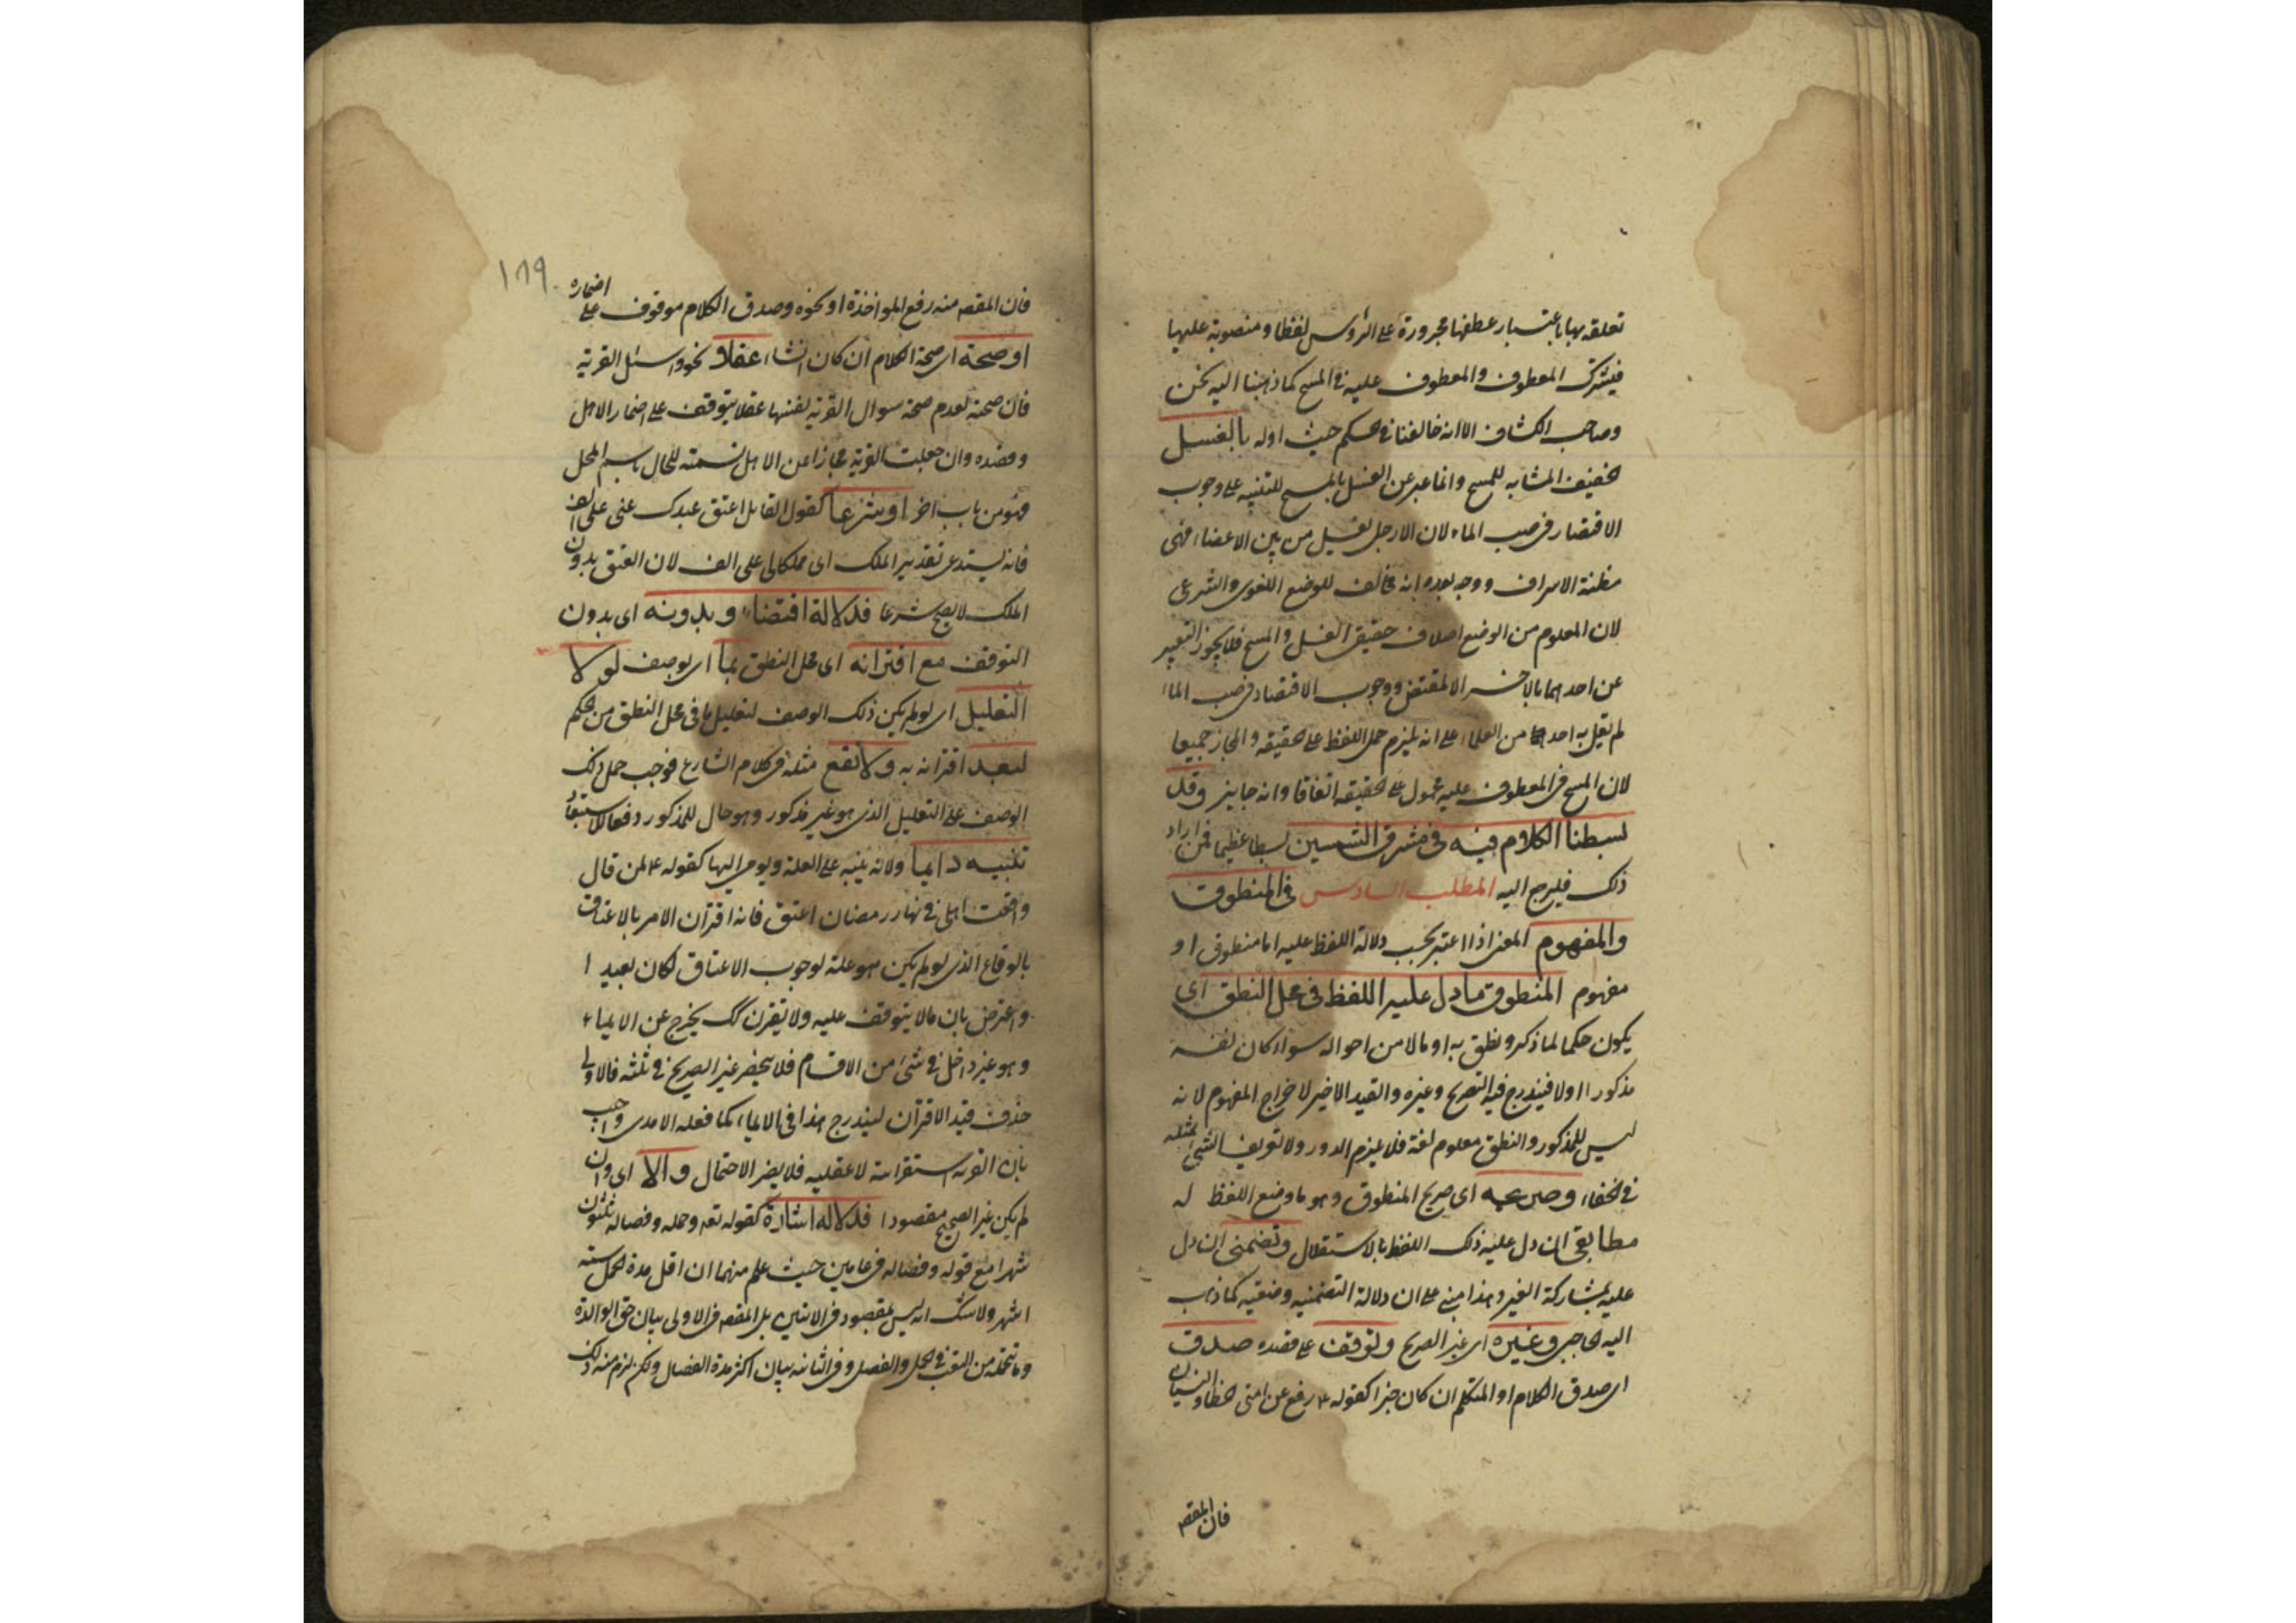 تعلقه بها باعتبار عطفها مجرورة على الرؤس لفظا ومنصوبة عليها
فيشترك المعطوف والمعطوف عليه في المسح كما ذهبنا اليه نحن
وصاحب الكشاف الا انه خالفنا في الحكم حيث اوله بالغسل
الخفيف المشابه للمسح وانما عبر عن الغسل بالمسح للتنبيه على وجوب
الاقتصار في صب الماء لان الارجل تغسل من بين الاعضاء فهى
مظنة الاسراف ووجه بعده انه مخالف للوضع اللغوى والشرعى
لان المعلوم من الوضع اختلاف حقيقتى الغسل والمسح فلا يجوز التعبير
عن احدهما بالاخر الا لمقتض ووجوب الاقتصاد في صب الماء
لم يقل به احد من العلماء على انه يلزم حمل اللفظ على حقيقته والمجاز جميعا
لان المسح في المعطوف عليه محمول على حقيقته اتفاقا وانه جايز وقد
بسطنا الكلام فيه في مشرق الشمسين بسطا عظيما فمن اراد
ذلك فليرجع اليه المطلب السادس في المنطوق
والمفهوم المعنى اذا اعتبر بحسب دلالة اللفظ عليه اما منطوق او
مفهوم المنطوق ما دل عليه اللفظ في محل النطق اى
يكون حكما لما ذكر ونطق به او حالا من احواله سواء كان نفسه
مذكورا اولا فيندرج فيه الصريح وغيره والقيد الاخير لاخراج المفهوم لانه
ليس للمذكور والنطق معلوم لغة فلا يلزم الدور ولا تعريف الشئ بمثله
في الخفاء وصريحه اى صريح المنطوق وهو ما وضع اللفظ له
مطابقى ان دل عليه ذلك اللفظ بالاستقلال وتضمنى ان دل
عليه بمشاركة الغير وهذا مبنى على ان دلالة التضمنيه وضعيه كما ذهب
اليه الحاجبى وغيره اى غير الصريح وتوقف على قصده صدق
اى صدق الكلام او المتكلم ان كان خبرا كقوله ع رفع عن امتى الخطاء والنسيان
فان المقصد
١٨٩
فان المقصد منه رفع المواخذة او نحوه وصدق الكلام موقوف على اضماره
او صحة اى صحة الكلام ان كان انشاء عقلا نحو واسئل القرية
فان صحته لعدم صحة سوال القرية لنفسها عقلا يتوقف على اضمار الاهل
وقصده وان جعلت القرية مجازا عن الاهل تسمية للحال باسم المحل
فهو من باب اخر او شرعا كقول القايل اعتق عبدك عنى على الف
فانه يستدعى تقدير الملك اى مملكا لى على الف لان العتق بدون
الملك لا يصح شرعا فدلالة اقتضاء وبدونه اى بدون
التوقف مع اقترانه اى محل النطق بما اى بوصف لو لا
التعليل اى لو لم يكن ذلك الوصف لتعليل ما في محل النطق من الحكم
لبعد اقترانه به ولا تقع مثله في كلام الشارع فوجب حمل ذلك
الوصف على التعليل الذى هو غير مذكور وهو حال للمذكور دفعا للاستبعاد
تنبيه وايما ولانه ينبه على العلة ويومى اليها كقوله ع لمن قال
واقعت اهلى في نهار رمضان اعتق فانه اقترن الامر بالاعتاق
بالوقاع الذى لو لم يكن هو علة لوجوب الاعتاق لكان بعيدا
واعترض بان ما لا يتوقف عليه ولا يقترن كك يخرج عن الايماء
وهو غير داخل في شئ من الاقسام فلا ينحصر غير الصريح في ثلثه فالاولى
حذف قيد الاقتران ليندرج هذا في الايماء كما فعله الامدى واجيب
بان القسمة استقرائية لا عقليه فلا يضر الاحتمال والا اى وان
لم يكن غير الصريح مقصودا فدلالة اشارة كقوله تعه وحمله وفصاله ثلثون
شهرا مع قوله وفصاله في عامين حيث علم منهما ان اقل مدة الحمل ستة
اشهر ولا شك انه ليس بمقصود في الايتين بل المقصد في الاولى بيان حق الوالدة
وما تتحمله من التعب في الحمل والفصل وفي الثانية بيان اكثر مدة الفصال ولكن لزم منه ذلك